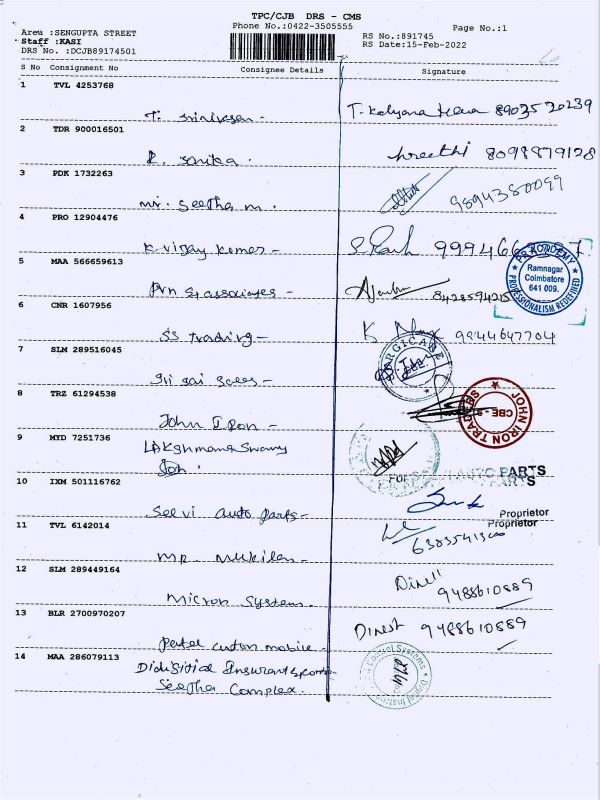 TPC/CJB DRS - CMS
Phone No.:0422-3505555
Page No.:1
Area :SENGUPTA STREET
Staff :KASI
DRS No. :DCJB89174501
RS No.:891745
RS Date:15-Feb-2022
S No Consignment No Consignee Details Signature
1 TVL 4253768
T. Srinivasan - 8903520239
2 TDR 900016501
R. Sonika. Preethi 8098879128
3 PDK 1732263
Mr. Seetha m. 9894380099
4 PRO 12904476
K Vijay Kumar -
PR ACADEMY
Ramnagar
Coimbatore
641 009.
PROFESSIONALISM REDEFINED
5 MAA 566659613
Pvn & associates - 8428594215
6 CNR 1607956
SS Trading - 9944647704
7 SLM 289516045
Sri Sai Sales -
8 TRZ 61294538
John Iron -
JOHN IRON TRADERS
CBE -
9 MYD 7251736
Lakshmana Swamy
10 IXM 501116762
For AUTO PARTS
Seevi auto parts -
Proprietor
Proprietor
11 TVL 6142014
Mr. Mukilan -
12 SLM 289449164
Micron Systems - 9488610889
13 BLR 2700970207
custom mobile - Dinesh 9488610889
14 MAA 286079113
Seetha Complex.